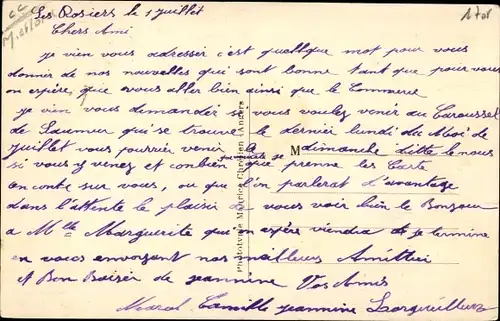 Les Rosiers le 1 juillet
Chers Ami
je vien vous adresser c'est quelque mot pour vous
donner de nos nouvelles qui sont bonne tant que pour vous
on espère, que vous aller bien ainsi que le Commerce
je vien vous demander se vous voulez venir au Caroussel
de Saumur qui se trouve le dernier lundi du Moi de
juillet vous pourrier venir le dimanche ditte le nous
si vous y venez et conbien que je prenne les Carte
on conte sur vous, ou que l'on parlerat d'avantage
dans l'attente le plaisir de vous voir bien le Bonjour
a Mlle Marguerite qui on espère viendra et je termine
en vous envoyant nos meilleurs Amitiers
et Bon Baiser de jeannine Vos Amis
Marcel Camille jeannine
Phototypie Maurice Chrétien (Angers)
M